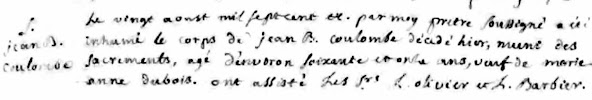 S.
jean B.
Coulombe
Le vingt aoust mil sept cent &c. par moy prêtre soussigné a été
inhumé le corps de jean B. Coulombe décédé hier, muni des
sacrements, agé d'environ soixante et onze ans, veuf de marie
anne dubois. ont assisté Les srs L. olivier et L. Barbier.